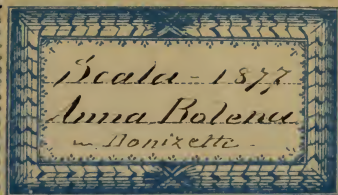 Scala - 1877
Anna Bolena
Donizetti.